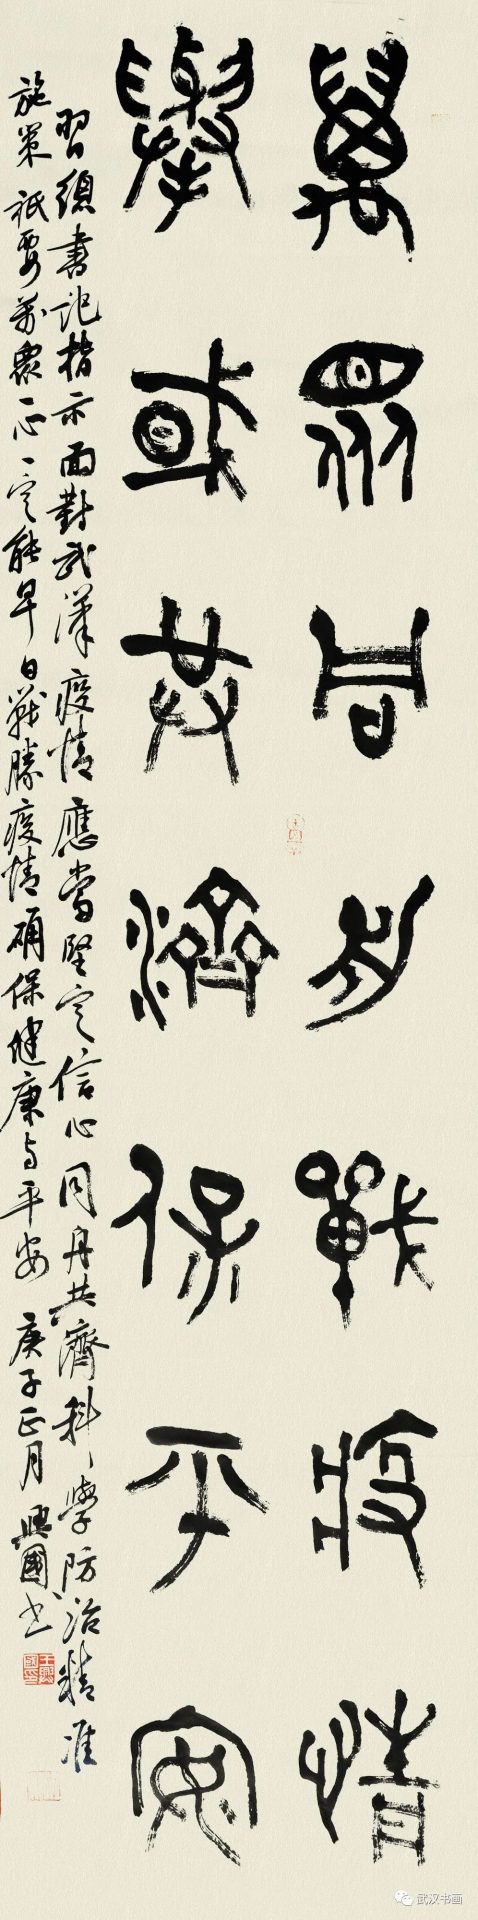 萬眾同力戰疫情
舉或共濟保平安
習總書記指示面對武漢疫情應當堅定信心同舟共濟科學防治精准
施策祇要萬眾一心一定能早日戰勝疫情确保健康与平安 庚子正月興國书
武汉书画